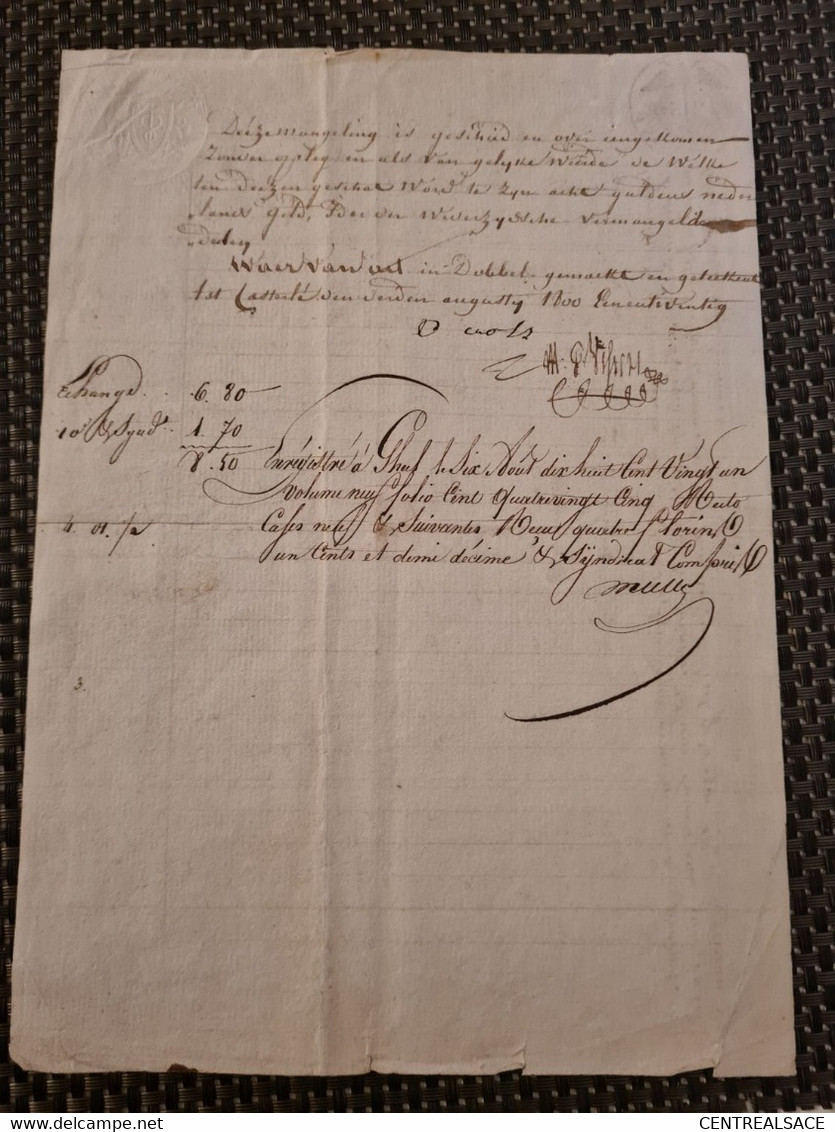 Deeze mangeling is geschied en over eengekomen
zonder opleg en als van gelyke weirde de welke
ten deezen geschat word te zyn acht guldens neder
landse geld, Ider der weierzydsche vermangelde
deelen
Waer van act in Dobbel gemaekt en geteekent
tot Casterlé den vierden augusty 1800 Eenentwintig
Echange 6. 80
10e & Synd. 1. 70
8. 50
4. 01. 1/2
Enrégistré à Gheel le Six Août dix huit Cent Vingt un
volume neuf folio Cent quatrevingt Cinq Recto
Cases neuf & Suivantes Recu quatre florins
un Cents et demi décime & Syndicat Compris
3.
CENTREALSACE